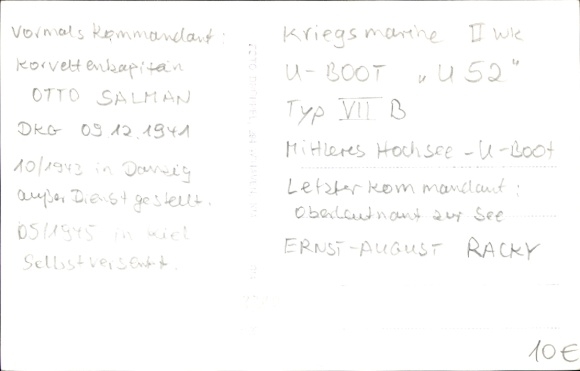 Vormals Kommandant:
Korvettenkapitän
OTTO SALMAN
DKG 09.12.1941
10/1943 in Danzig
außer Dienst gestellt.
05/1945 in Kiel
Selbstversenkt.
Kriegsmarine II WK
U-BOOT "U 52"
Typ VII B
Mittleres Hochsee-U-Boot
Letzter Kommandant:
Oberleutnant zur See
ERNST-AUGUST RACKY
10€